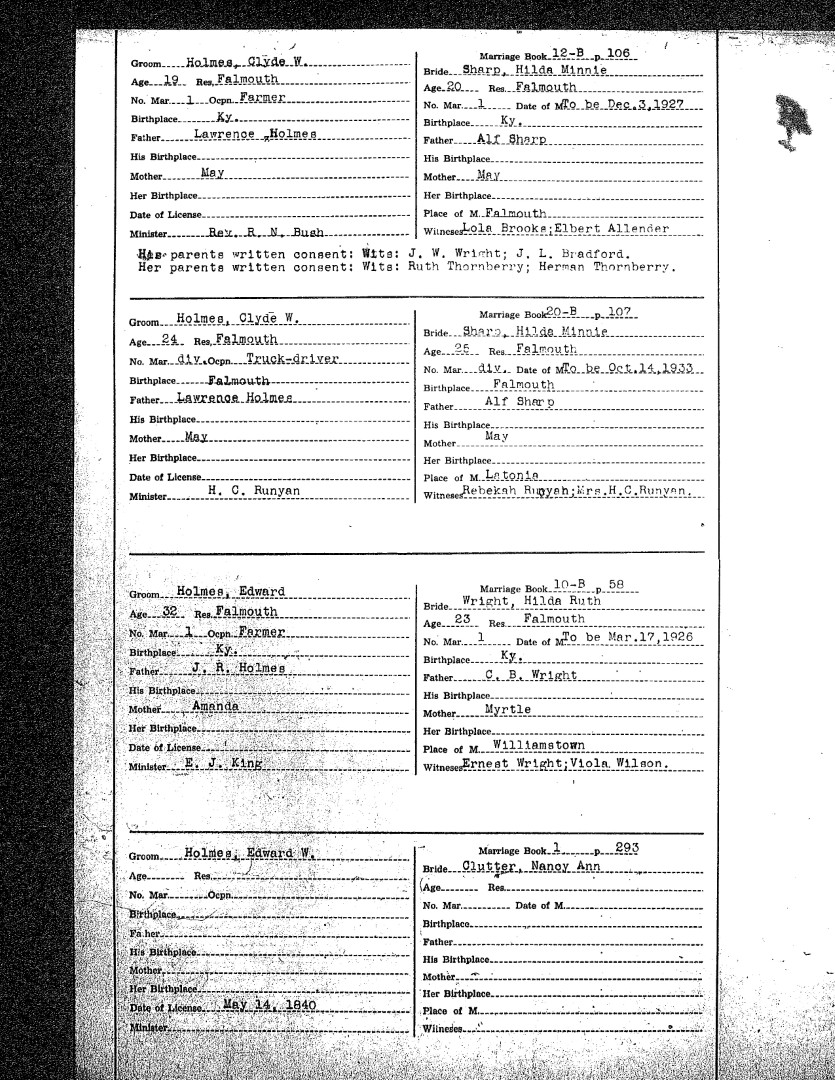 Groom Holmes, Clyde W.
Age 19 Res. Falmouth
No. Mar. 1 Ocpn. Farmer
Birthplace Ky.
Father Lawrence Holmes
His Birthplace
Mother May
Her Birthplace
Date of License
Minister Rev. R. N. Bush
Marriage Book 12-B p. 106
Bride Sharp, Hilda Minnie
Age 20 Res. Falmouth
No. Mar. 1 Date of M. To be Dec.3,1927
Birthplace Ky.
Father Alf Sharp
His Birthplace
Mother May
Her Birthplace
Place of M. Falmouth
Witneses Lola Brooks;Elbert Allender
His parents written consent: Wits: J. W. Wright; J. L. Bradford.
Her parents written consent: Wits: Ruth Thornberry; Herman Thornberry.
Groom Holmes, Clyde W.
Age 24 Res. Falmouth
No. Mar. div. Ocpn. Truck-driver
Birthplace Falmouth
Father Lawrence Holmes
His Birthplace
Mother May
Her Birthplace
Date of License
Minister H. C. Runyan
Marriage Book 20-B p. 107
Bride Sharp, Hilda Minnie
Age 25 Res. Falmouth
No. Mar. div. Date of M. To be Oct.14,1933
Birthplace Falmouth
Father Alf Sharp
His Birthplace
Mother May
Her Birthplace
Place of M. Latonia
Witneses Rebekah Runyan;Mrs.H.C.Runyan.
Groom Holmes, Edward
Age 32 Res. Falmouth
No. Mar. 1 Ocpn. Farmer
Birthplace Ky.
Father J. R. Holmes
His Birthplace
Mother Amanda
Her Birthplace
Date of License
Minister E. J. King
Marriage Book 10-B p. 58
Bride Wright, Hilda Ruth
Age 23 Res. Falmouth
No. Mar. 1 Date of M. To be Mar.17,1926
Birthplace Ky.
Father C. B. Wright
His Birthplace
Mother Myrtle
Her Birthplace
Place of M. Williamstown
Witneses Ernest Wright;Viola Wilson.
Groom Holmes, Edward W.
Age Res.
No. Mar. Ocpn.
Birthplace
Father
His Birthplace
Mother
Her Birthplace
Date of License May 14, 1840
Minister
Marriage Book 1 p. 293
Bride Clutter, Nancy Ann
Age Res.
No. Mar. Date of M.
Birthplace
Father
His Birthplace
Mother
Her Birthplace
Place of M.
Witneses